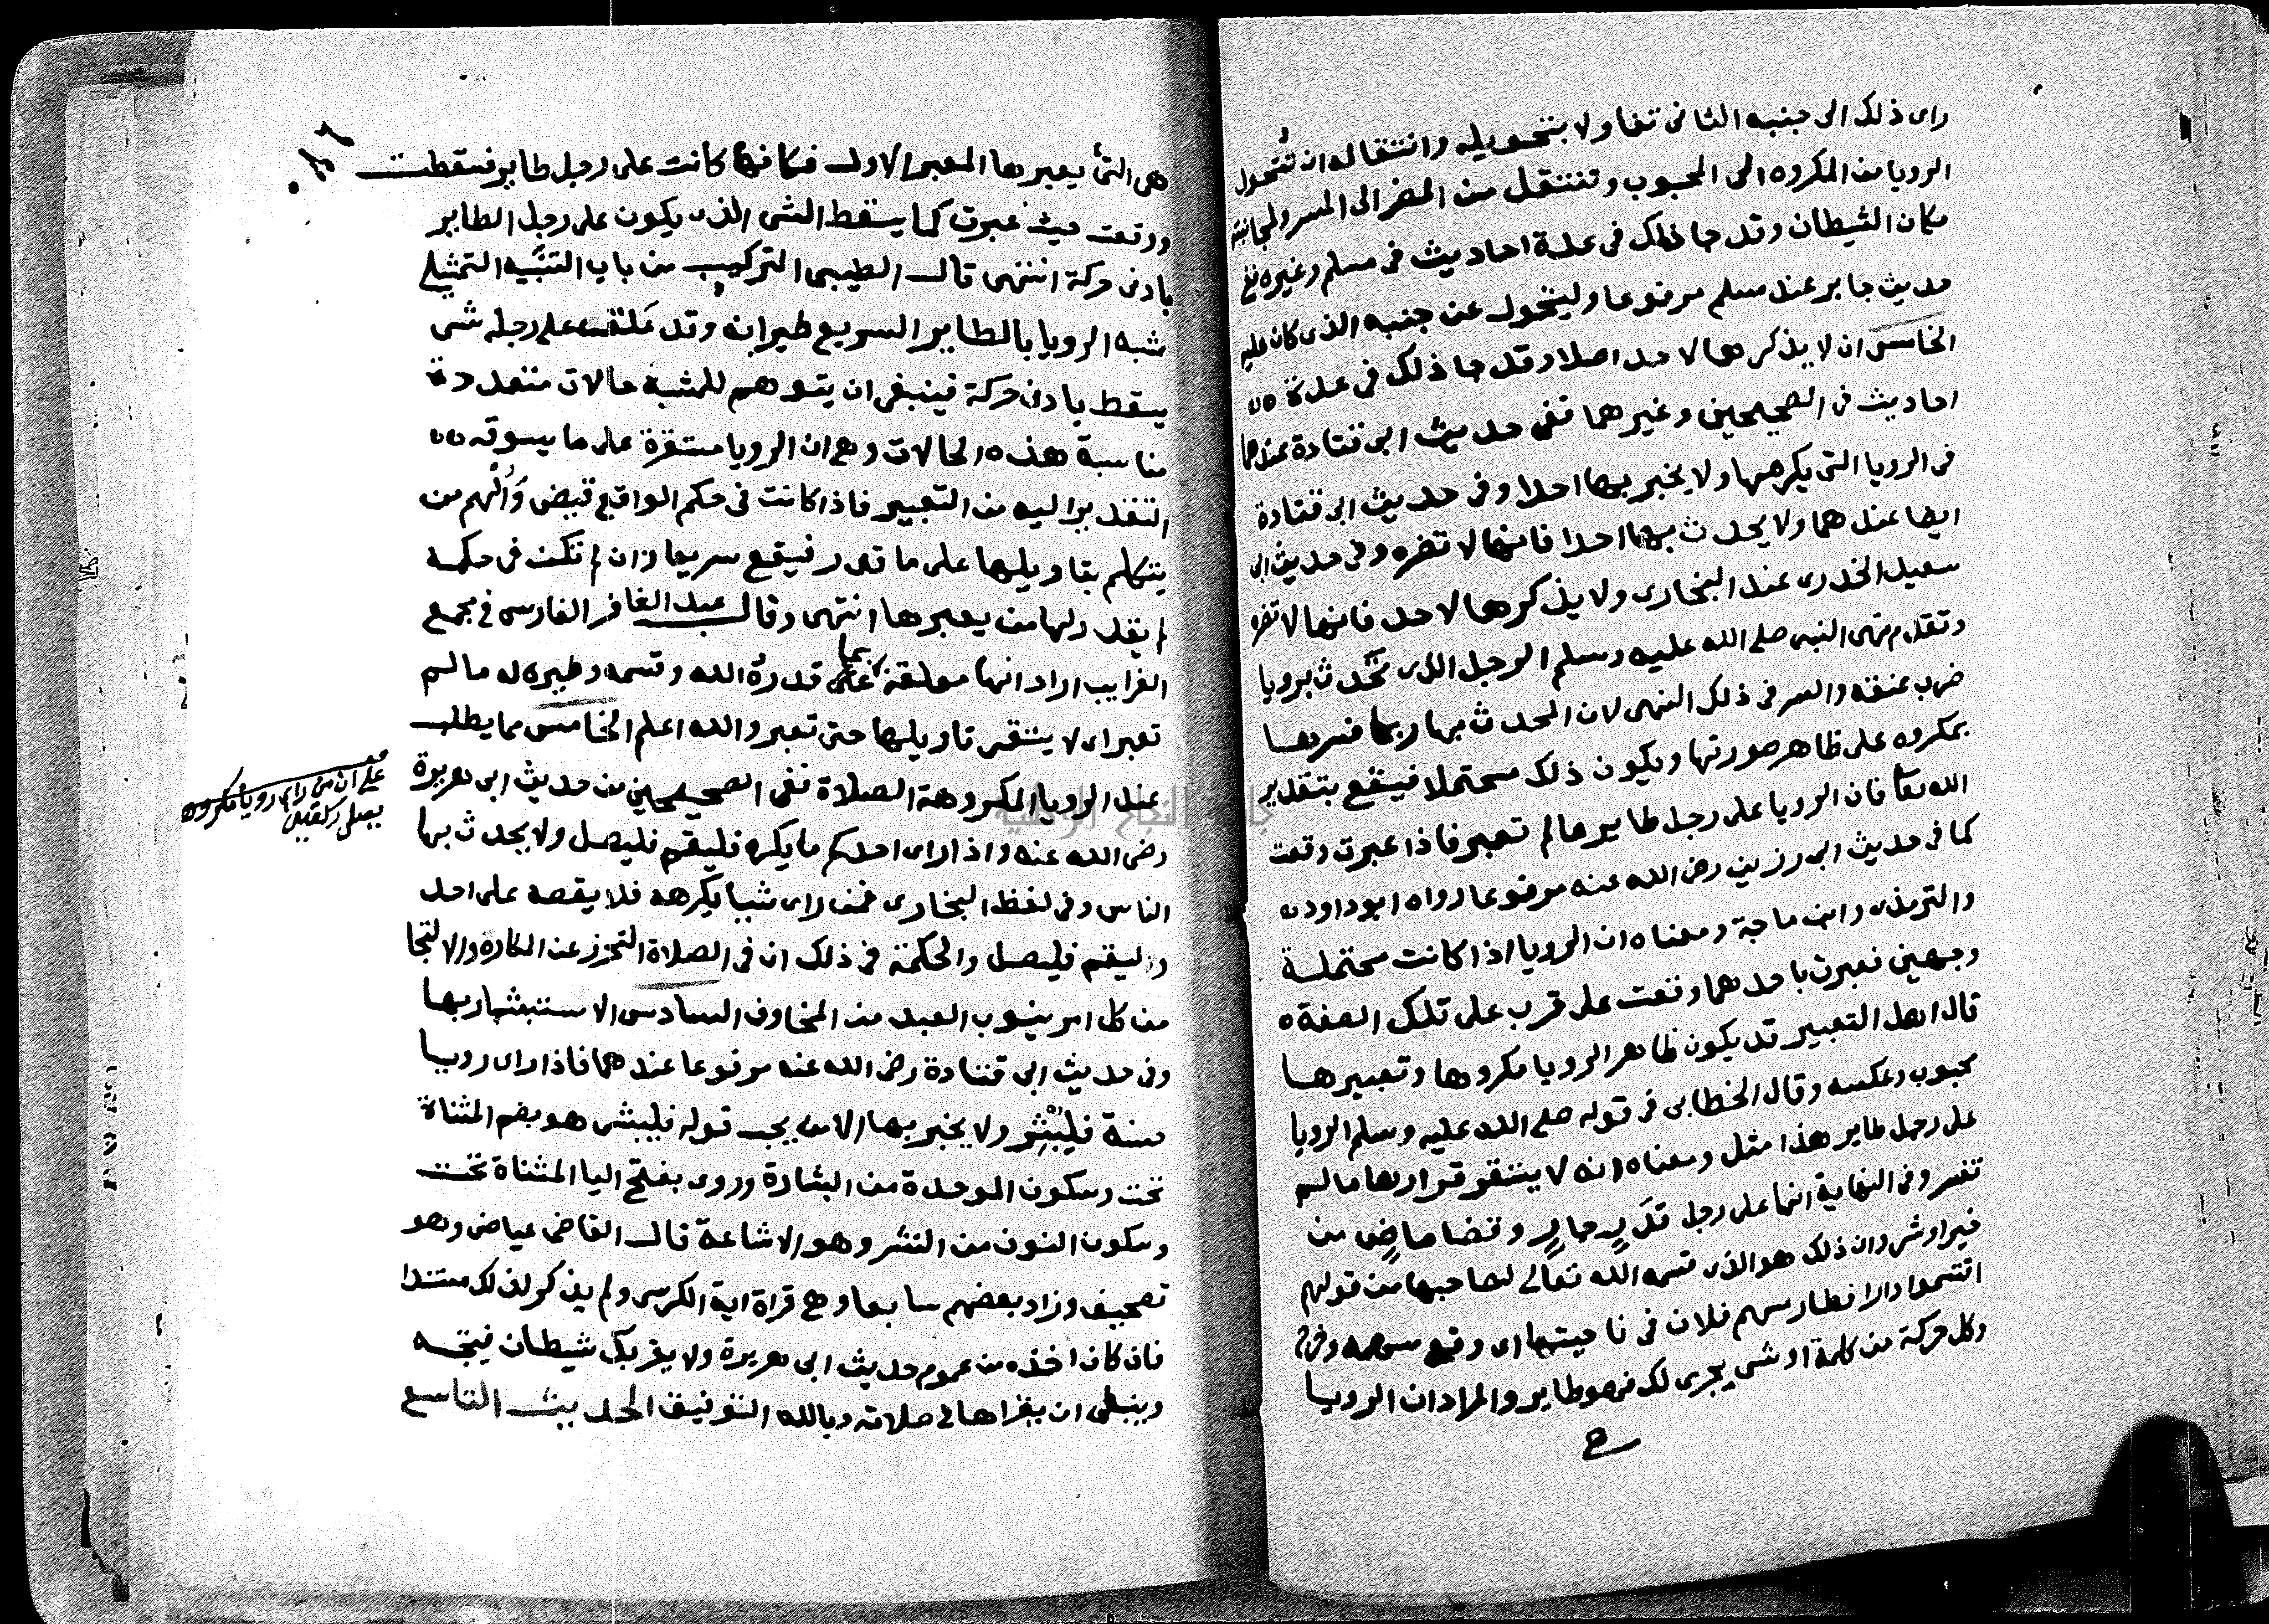 راى ذلك الى جنبه الثانى تفاولا بتحويله وانتقاله ان تتحول
الرويا من المكروه الى المحبوب وتنتقل من المضر الى المسر ولمجانبته
مكان الشيطان وقد جا ذلك فى عدة احاديث فى مسلم وغيره ففى
حديث جابر عند مسلم مرفوعا وليتحول عن جنبه الذى كان عليه
الخامس ان لا يذكرها لاحد اصلا وقد جا ذلك فى عدة
احاديث فى الصحيحين وغيرهما ففى حديث ابى قتادة عندهما
فى الرويا التى يكرهها ولا يخبر بها احدا وفى حديث ابى قتادة
ايضا عندهما ولا يحدث بها احدا فانها لا تضره وفى حديث ابى
سعيد الخدرى عند البخارى ولا يذكرها لاحد فانها لا تضره
وتقدم نهى النبى صلى الله عليه وسلم الرجل الذى تحدث برويا
ضرب عنقه والسر فى ذلك النهى لان المحدث بها ربما فسرها
بمكروه على ظاهر صورتها ويكون ذلك محتملا فيقع بتقدير
الله تعا فان الرويا على رجل طاير مالم تعبر فاذا عبرت وقعت
كما فى حديث ابى رزين رضى الله عنه مرفوعا رواه ابوداود
والترمذى وابن ماجة ومعناه ان الرويا اذا كانت محتملة
وجهين فعبرت باحدهما وقعت على قرب على تلك الصفة
قال اهل التعبير قد يكون ظاهر الرويا مكروها وتعبيرها
محبوب وعكسه وقال الخطابى فى قوله صلى الله عليه وسلم الرويا
على رجل طاير هذا مثل ومعناه انه لا يستقر قرارها مالم
تفسر وفى النهاية انها على رجل قدرٍ جارٍ وقضا ماضٍ من
خير او شر وان ذلك هو الذى قسمه الله تعالى لصاحبها من قولهم
اقتسموا دارا فطار سهم فلان فى ناحيتها اى وقع سهمه وخرج
وكل حركة من كلمة او شى يجرى لك فهو طاير والمراد ان الرويا
هى التى يعبرها المعبر الاول فكانها كانت على رجل طاير فسقطت
ووقعت حيث عبرت كما يسقط الشى الذى يكون على رجل الطاير
بادنى حركة انتهى قال الطيبى التركيب من باب التشبيه التمثيلى
شبه الرويا بالطاير السريع طيرانه وقد علقت على رجله شى
يسقط بادنى حركة فينبغى ان يتوهم للمشبه حالات متعددة
مناسبة هذه الحالات وهى ان الرويا مستقرة على ما يسوقه
التقدير اليه من التعبير فاذا كانت فى حكم الواقع قيض وألهم من
يتكلم بتاويلها على ما قدر فيقع سريعا وان لم تكن فى حكمه
لم يقدر لها من يعبرها انتهى وقال عبد الغافر الفارسى فى مجمع
الغرايب اراد انها معلقة بما على قدره الله وقسمه وطيره له مالم
تعبر اى لا يستقر تاويلها حتى تعبر والله اعلم الخامس مما يطلب
عند الرويا المكروهة الصلاة ففى الصحيحين من حديث ابى هريرة
رضى الله عنه واذا راى احدكم ما يكره فليقم فليصل ولا يحدث بها
الناس وفى لفظ البخارى فمن راى شيا يكرهه فلا يقصه على احد
وليقم فليصل والحكمة فى ذلك ان فى الصلاة التحرز عن المكاره والالتجا
من كل امر ينوب العبد من المخاوف السادس الاستبشار بها
وفى حديث ابى قتادة رضى الله عنه مرفوعا عندهما فاذا راى رويا
حسنة فليبشر ولا يخبر بها الا من يحب قوله فليبشر هو بضم المثناة
تحت وسكون الموحدة من البشارة وروى بفتح اليا المثناة تحت
وسكون النون من النشر وهو الاشاعة قال القاضى عياض وهو
تصحيف وزاد بعضهم سابعا وهى قراة اية الكرسى ولم يذكر لذلك مستندا
فان كان اخذه من عموم حديث ابى هريرة ولا يقربك شيطان فيتجه
وينبغى ان يقراها فى صلاته وبالله التوفيق الحديث التاسع
على ان من راى رويا مكروه
يصلى ركعتين
جامعة النجاح الوطنية